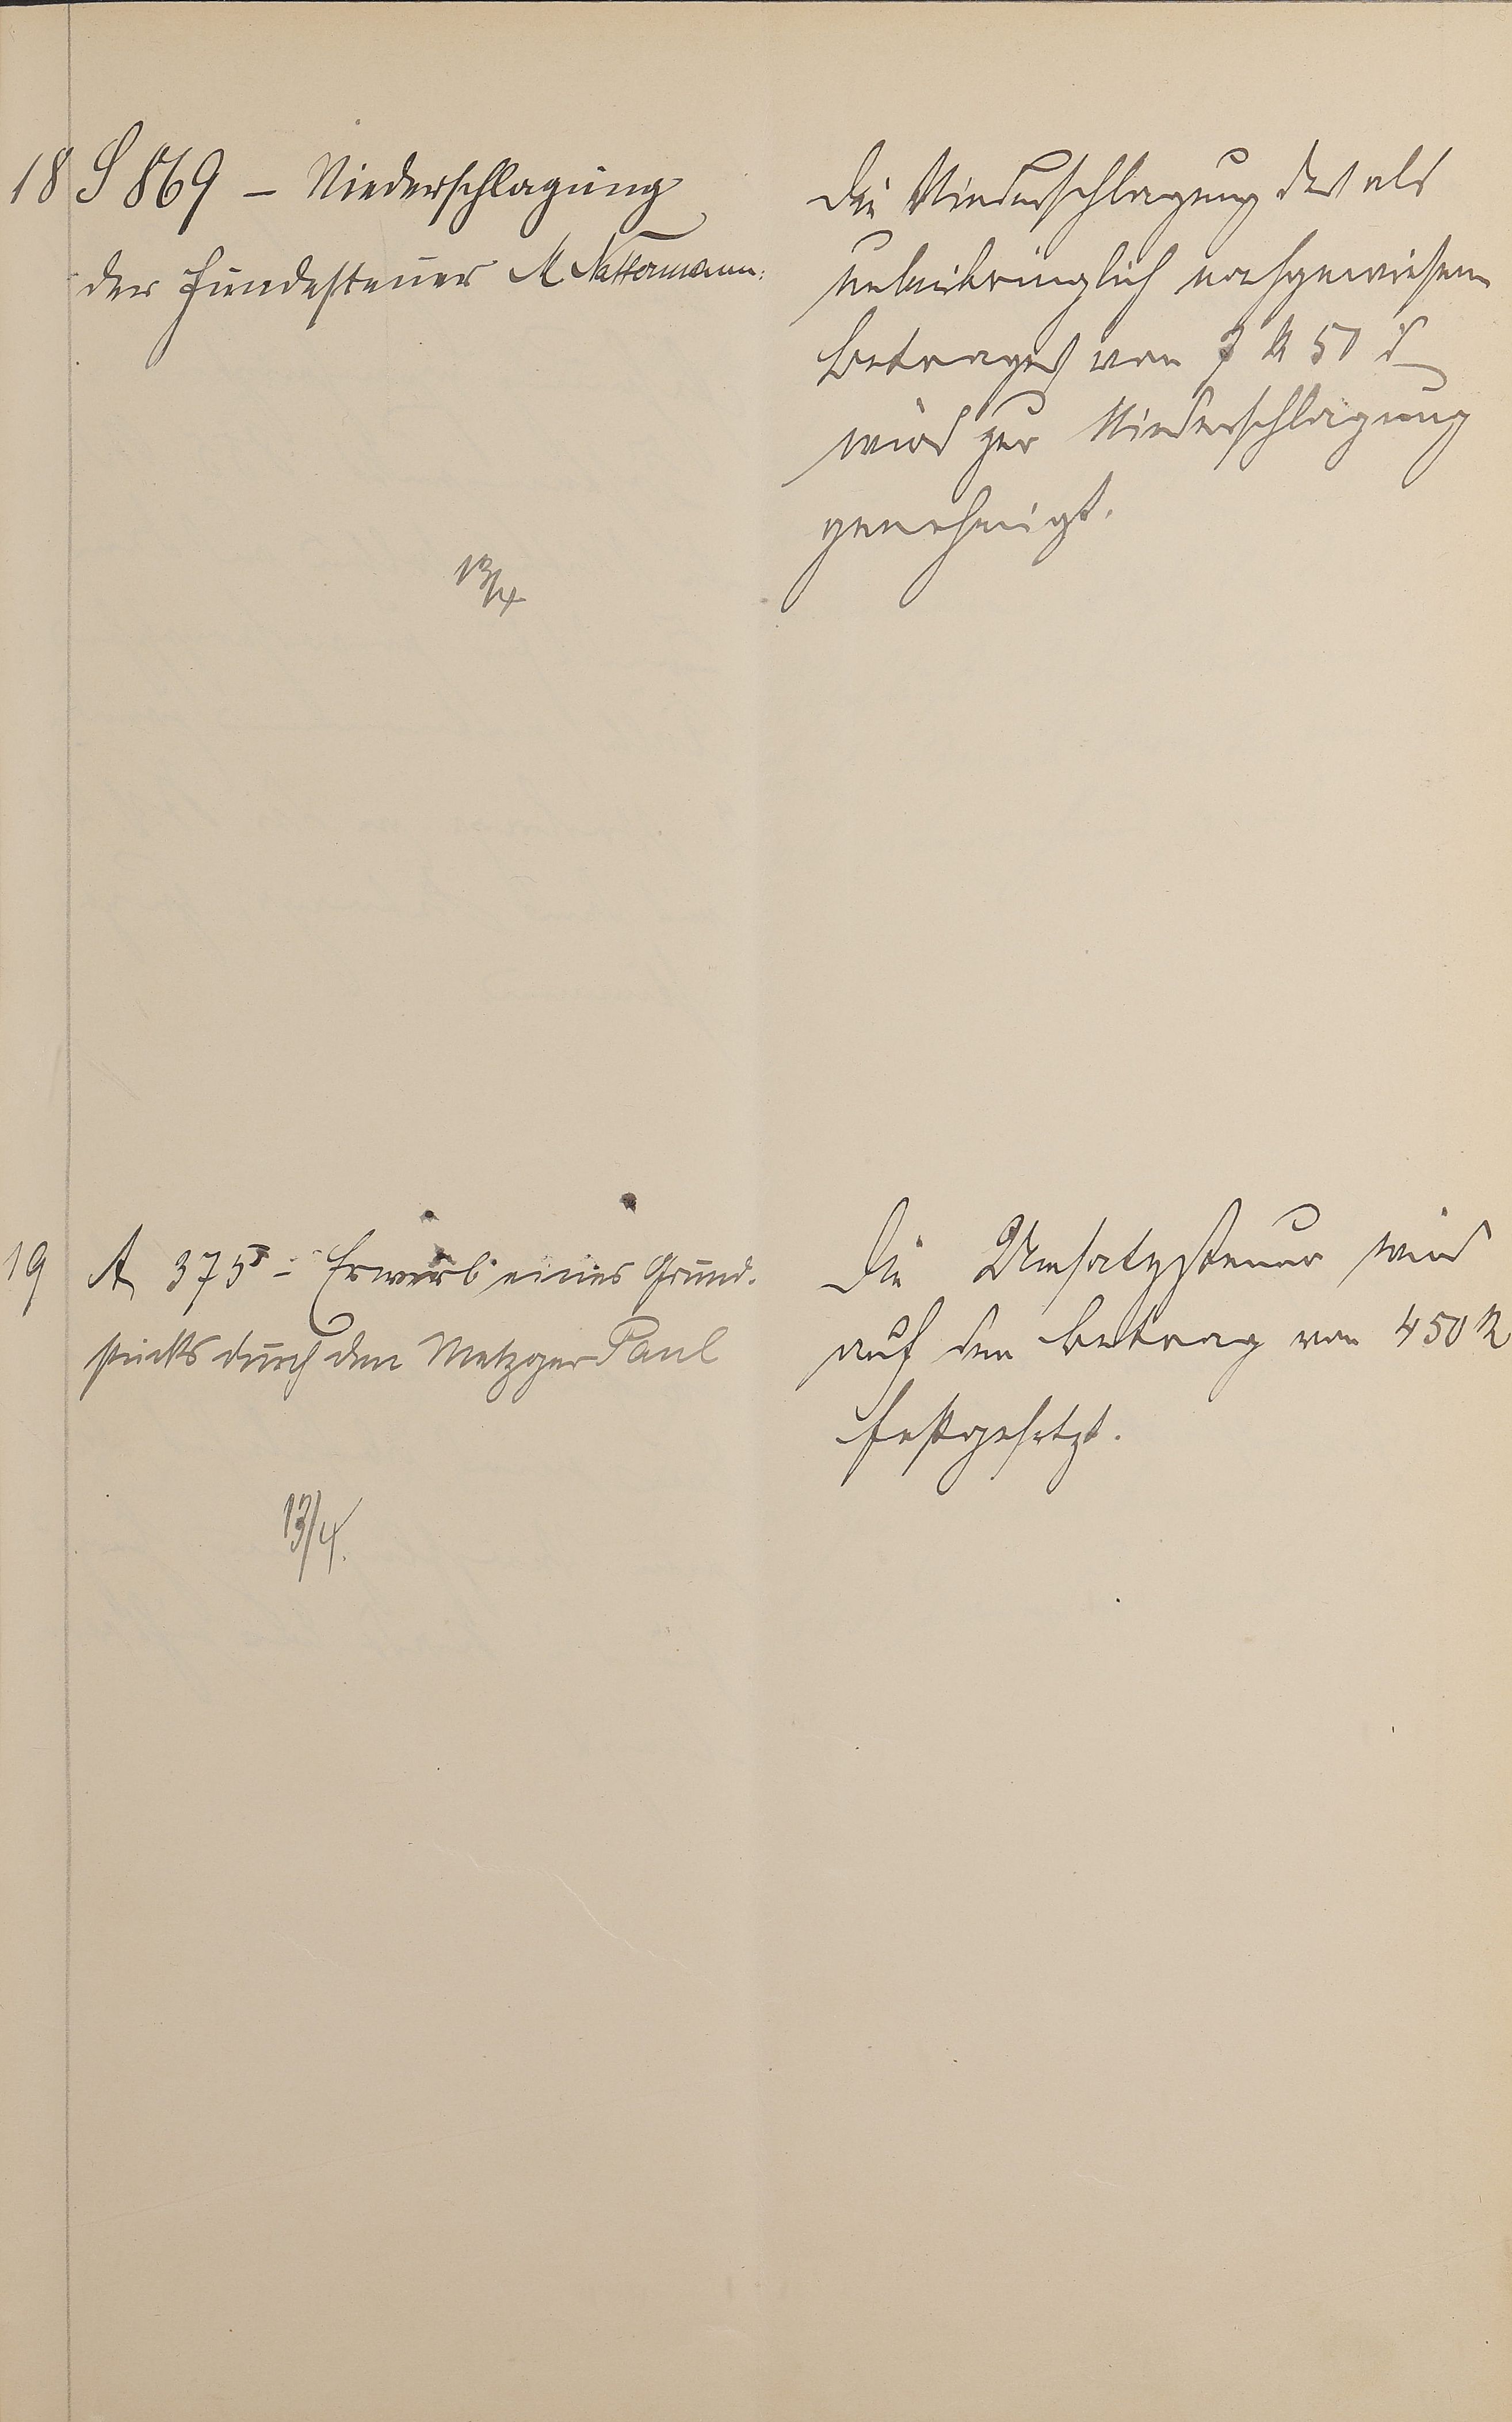 18 S 869 – Niederschlagung
der Hundesteuer M Nattermann.
13/4
Die Niederschlagung des als
unbeibringlich nachgewiesenen
Betrages von 7 M 50 ₰
wird zur Niederschlagung
genehmigt.
19 A 375 I – Erwerb eines Grund-
stücks durch den Metzger Paul
13/4.
Die Umsatzsteuer wird
auf den Betrag von 450 M
festgesetzt.